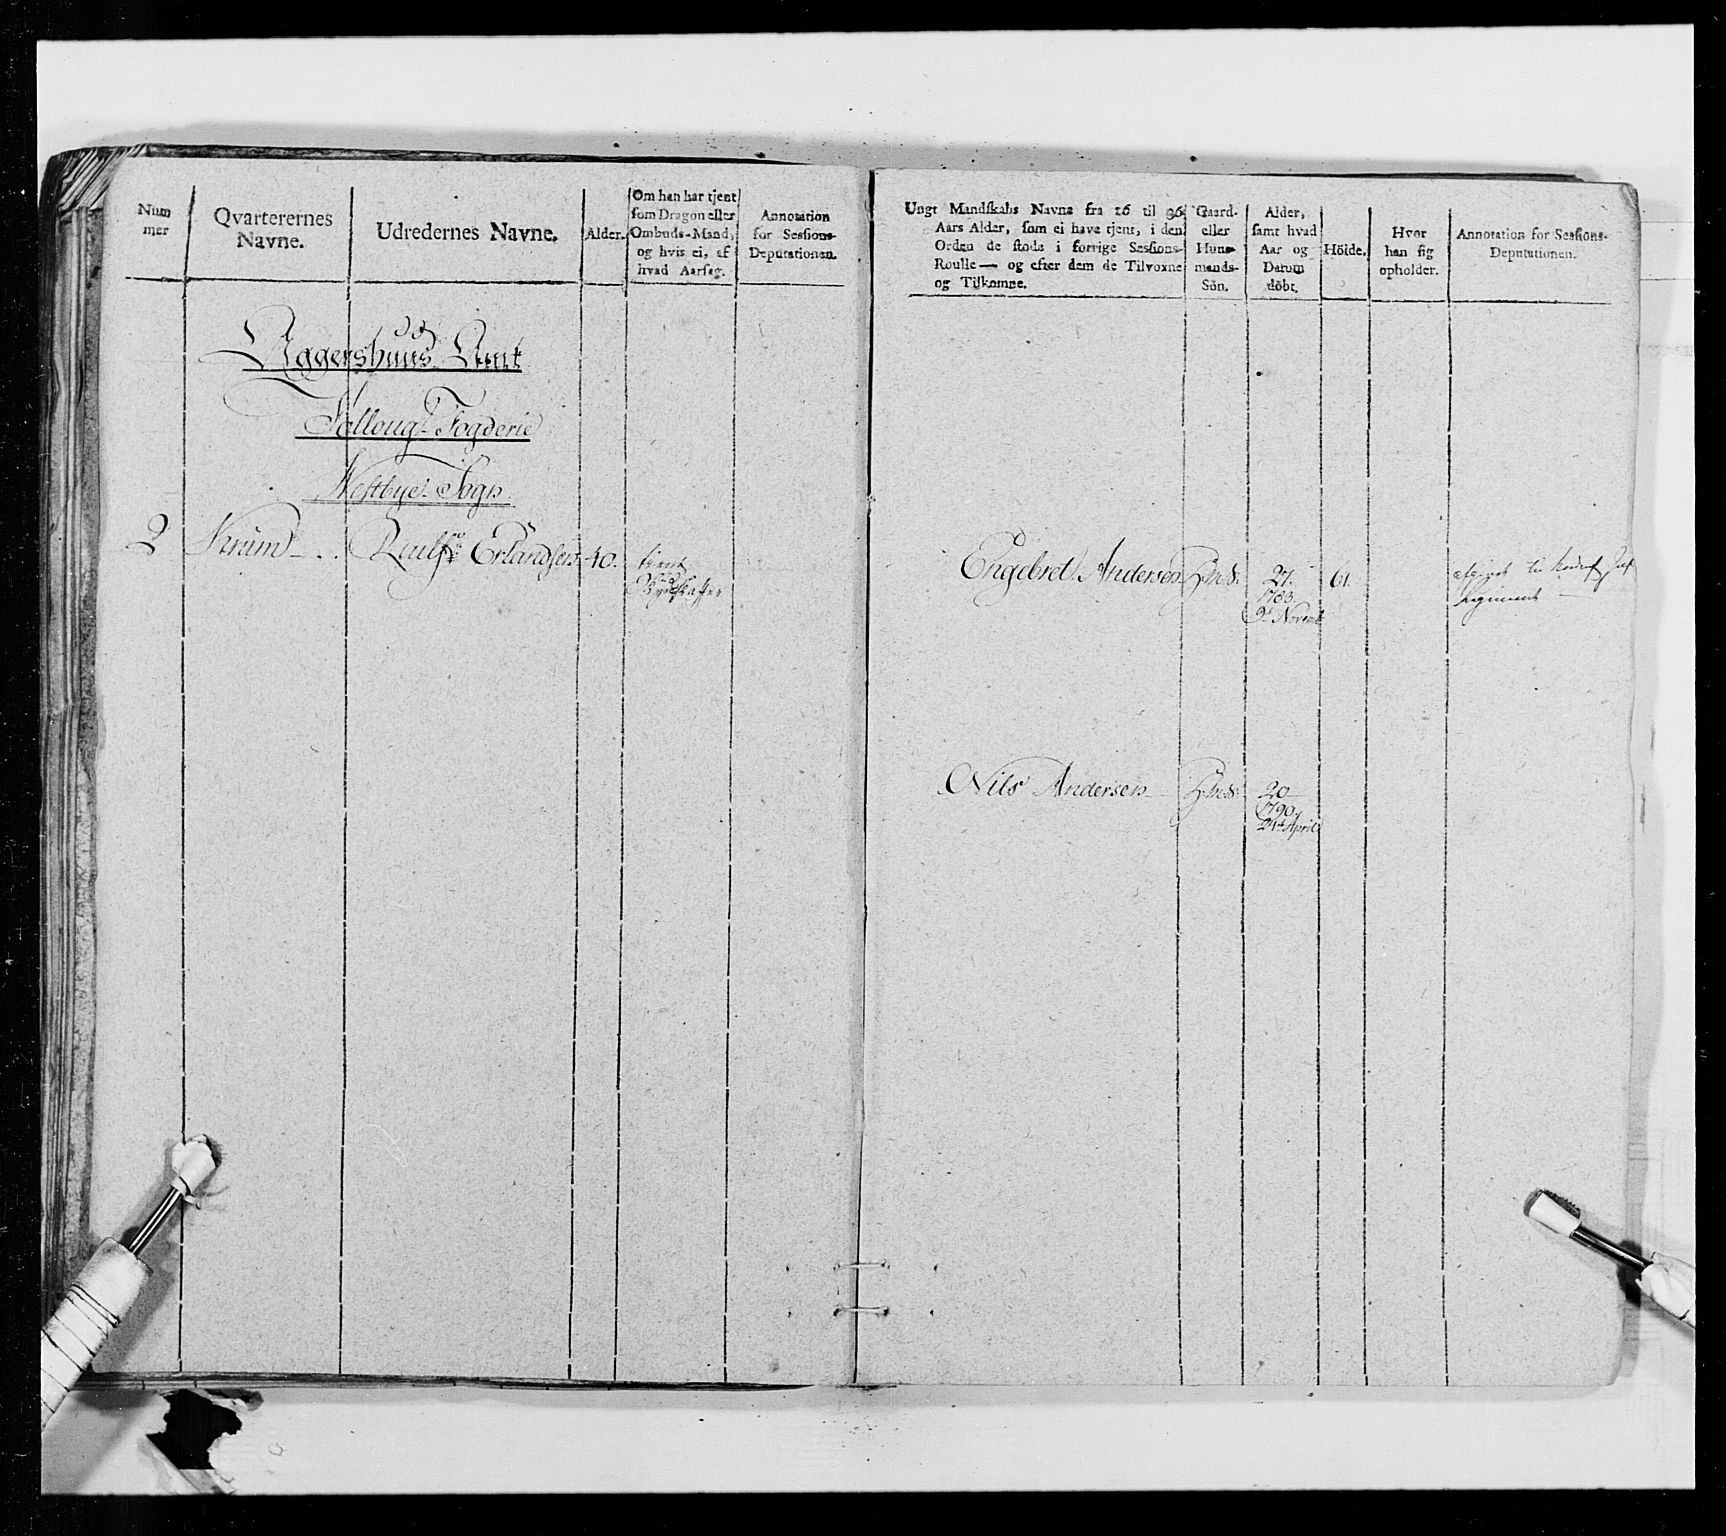 Num
mer
Qvarterernes
Navne.
Udredernes Navne.
Alder.
Om han har tjent
som Dragon eller
Ombuds-Mand,
og hvis ei, af
hvad Aarsag.
Annotation
for Sessions-
Deputationen.
Aggershuus Amt
Folloug Fogderie
Nestbye Sogn
2 Krum - . . Erlandsen 40. tient
Ungt Mandskabs Navne fra 16 til 36
Aars Alder, som ei have tjent, i den
Orden de stode i forrige Sessions-
Roulle — og efter dem de Tilvoxne
og Tilkomne.
Gaard-
eller
Huus-
mands-
Sön.
Alder,
samt hvad
Aar og
Datum
döbt.
Hölde.
Hvor
han sig
opholder.
Annotation for Sessions-
Deputationen.
Engebret Andersen H:m:S: 27. 61
1783.
9de Novemb
afgivet til
Regiment —
Nils Andersen - H:m:S: 20
1790,
24de April